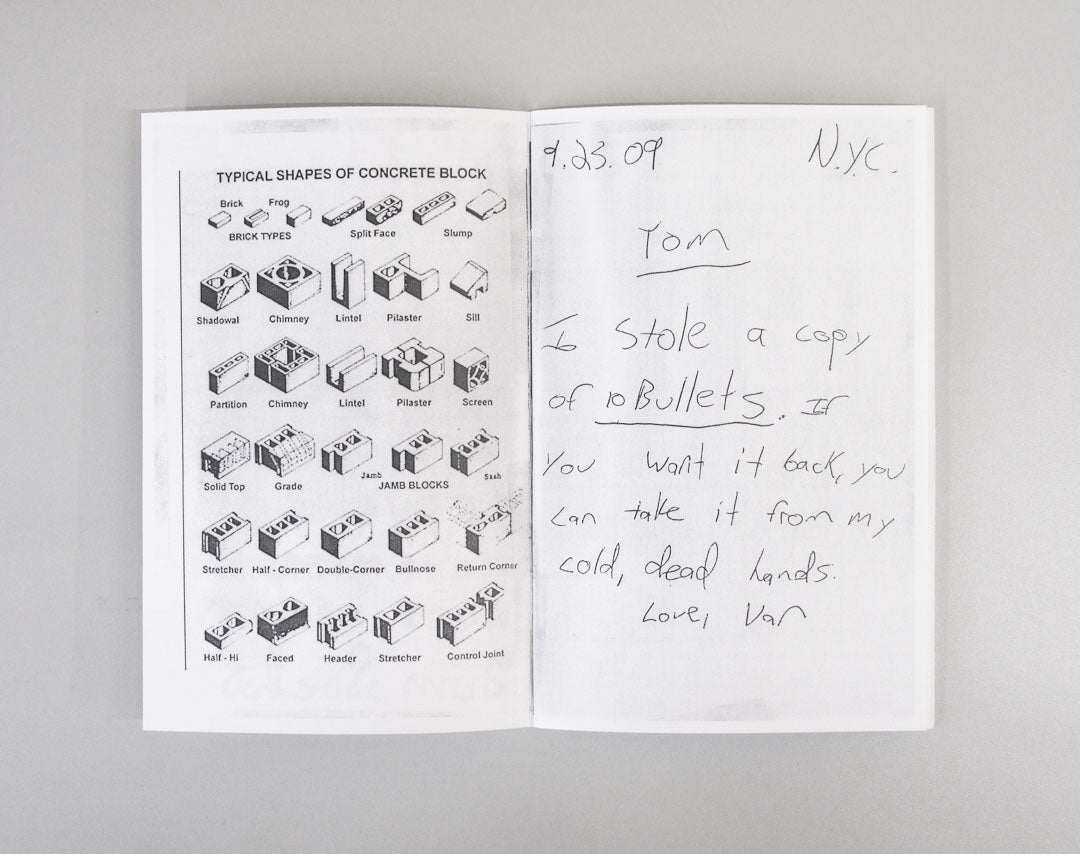 TYPICAL SHAPES OF CONCRETE BLOCK
Brick Frog
BRICK TYPES Split Face Slump
Shadowal Chimney Lintel Pilaster Sill
Partition Chimney Lintel Pilaster Screen
Solid Top Grade Jamb JAMB BLOCKS Sash
Stretcher Half - Corner Double-Corner Bullnose Return Corner
Half - Hi Faced Header Stretcher Control Joint
9.23.09 N.Y.C.
Tom
I Stole a copy
of 10 Bullets. If
You want it back, you
can take it from my
cold, dead hands.
Love, Van